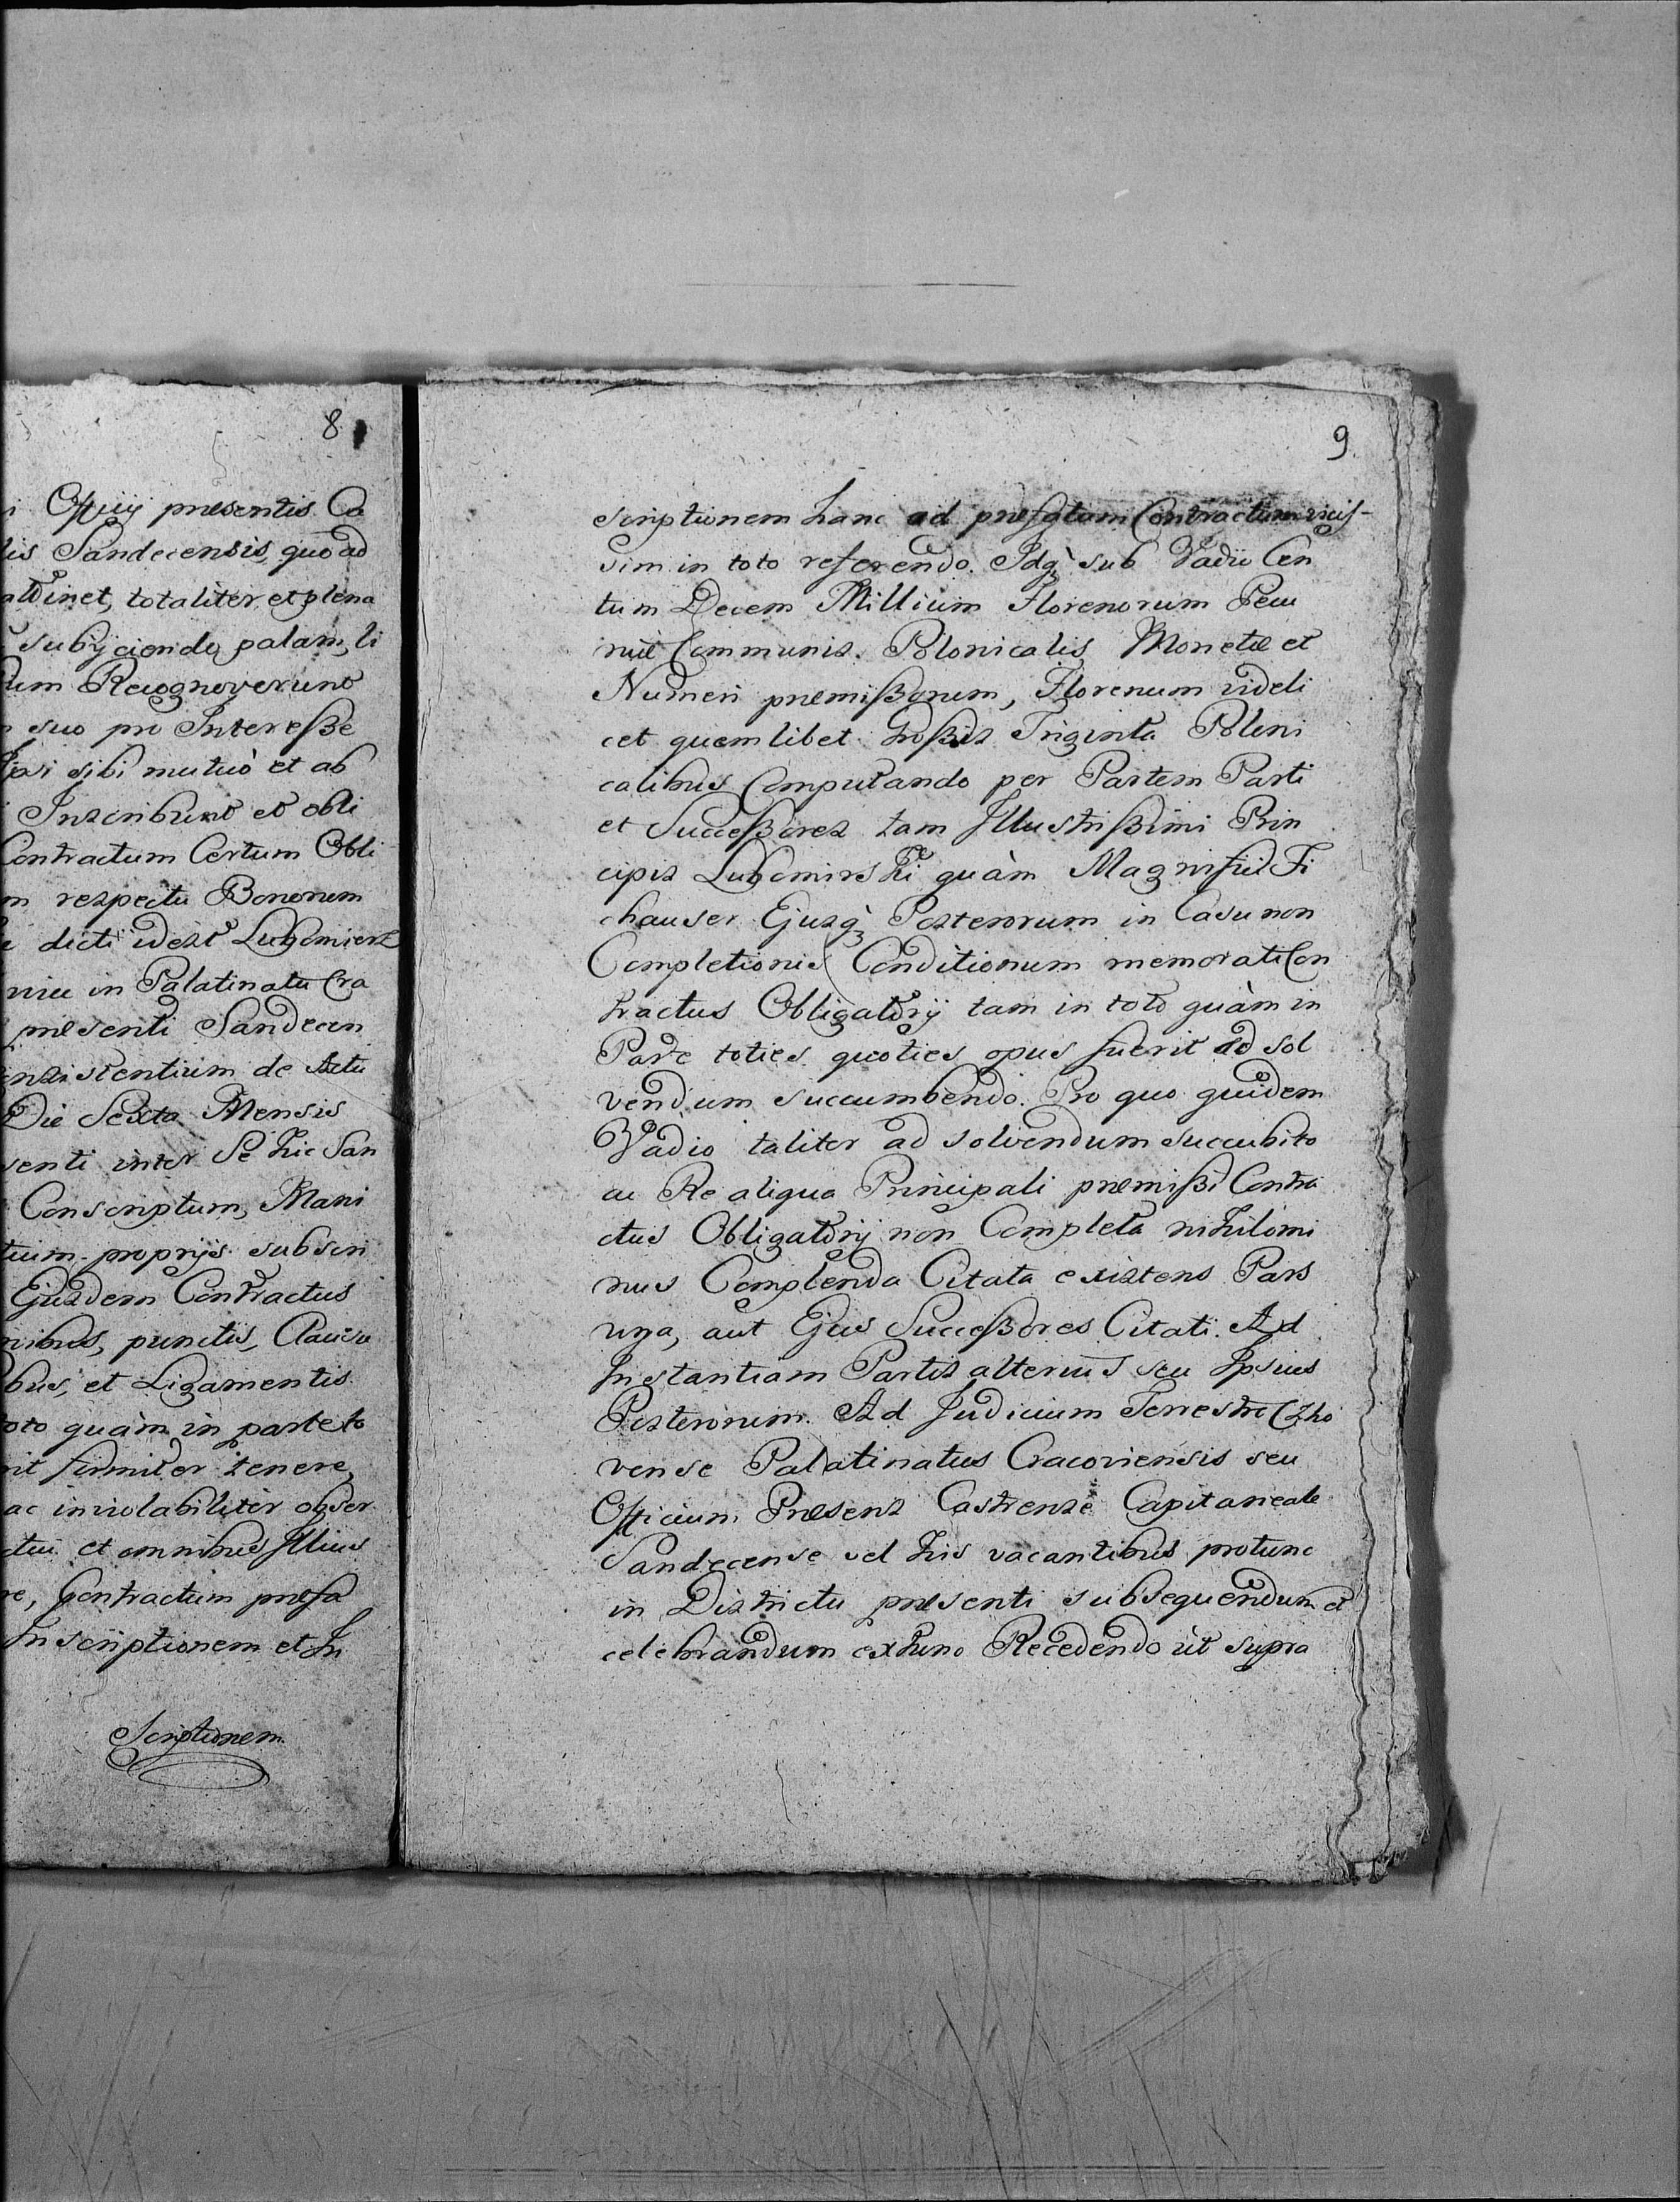 8
Officij presentis Ca
lis Sandecensis, quo ad
attinet, totaliter et plena
subijciendo, palam, li
Recognoverunt
suo pro Interesse
sibi mutuò et ab
Inscribunt et obli
Contractum Certum Obli
respectu Bonorum
dicti idest Lubomierz
in Palatinatu Cra
presenti Sandecen
consistentium de Actu
Die Sexta Mensis
senti inter Se hic San
Conscriptum, Mani
proprijs subscri
Ejusdem Contractus
nibus, punctis, Clausu
bus, et Ligamentis
toto quàm in parte to
rit firmiter tenere,
ac inviolabiliter obser
ctui et omnibus Illius
re, Contractum præfa
Inscriptionem et In
Scriptionem
9
scriptionem hanc ad præfatum Contractum vicis-
sim in toto referendo. Idq̀ sub Vadio Cen
tum Decem Millium Florenorum Pecu
niæ Communis Polonicalis Monetæ et
Numeri præmißorum, Florenum videli
cet quemlibet Großis Triginta Poloni
calibus Computando per Partem Parti
et Succeßores tam Illustrißimi Prin
cipis Lubomirski quàm Magnifici Fi
chauser Ejusq̀ Posterorum in Casu non
Completionis Conditionum memorati Con
tractus Obligatorij tam in toto quàm in
Parte toties quoties opus fuerit ad sol
vendum succumbendo. Pro quo quidem
Vadio taliter ad solvendum succubito
ac Re aliqua Principali præmißi Contra
ctus Obligatorij non Completa nihilomi
nus Complenda Citata existens Pars
una, aut Ejus Succeßores Citati. Ad
Instantiam Partis alterius seu Ipsius
Posterorum. Ad Judicium Terrestre Czcho
vense Palatinatus Cracoviensis seu
Officium Præsens Castrense Capitaneale
Sandecense vel his vacantibus protunc
in Districtu præsenti subsequendum et
celebrandum extunc Recedendo ùt supra